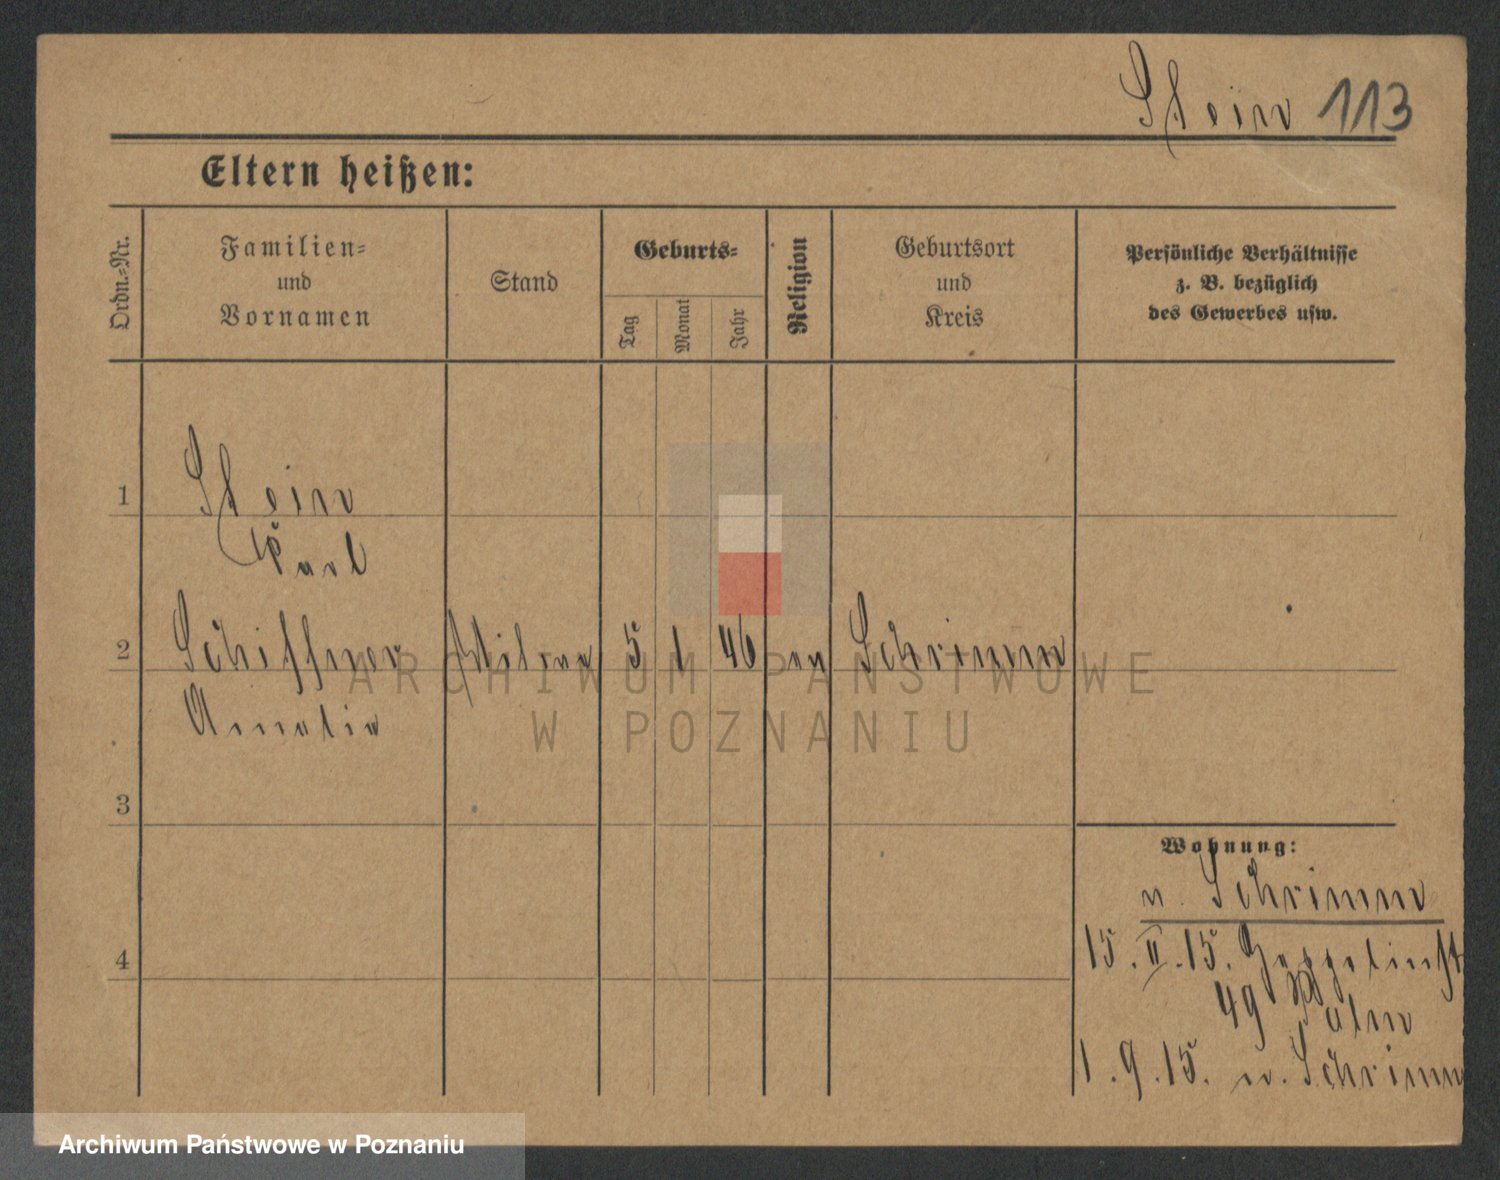 Stein 113
Eltern heißen:
Ordn.-Nr.
Familien-
und
Vornamen
Stand
Geburts-
Tag
Monat
Jahr
Religion
Geburtsort
und
Kreis
Persönliche Verhältnisse
z. B. bezüglich
des Gewerbes usw.
1
Stein
Karl
2
Schiffner 5 1 46 ev Schrimm
Amalie
3
4
Wohnung:
n. Schrimm
15. II. 15.
49
1. 9. 15. n. Schrimm
ARCHIWUM PAŃSTWOWE
W POZNANIU
Archiwum Państwowe w Poznaniu